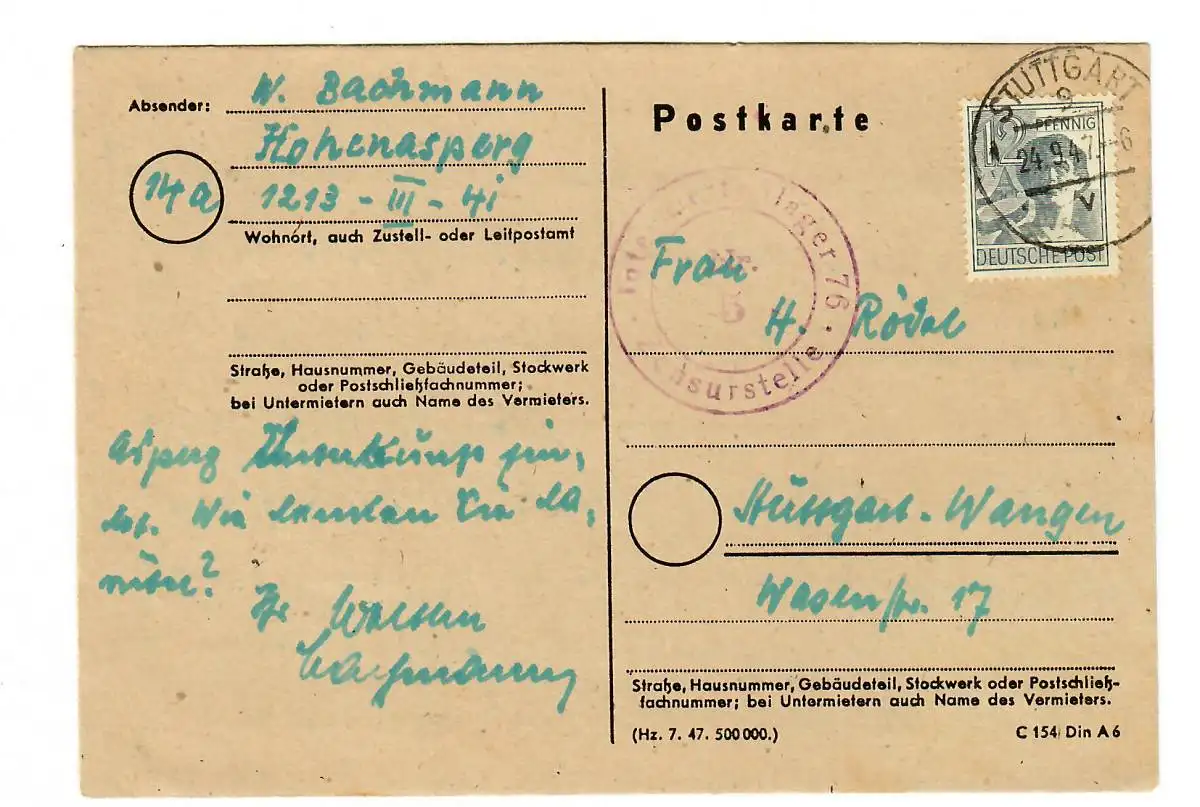 Absender: W. Bachmann
Hohenasperg
14a 1213 - III - 4i
Wohnort, auch Zustell- oder Leitpostamt
Straße, Hausnummer, Gebäudeteil, Stockwerk
oder Postschließfachnummer;
bei Untermietern auch Name des Vermieters.
Asperg Unterkunft fin-
det. Wie denken Sie da-
rüber?
Ihr
Bachmann
Postkarte
STUTTGART
9
24.9.47.-6
12 PFENNIG
DEUTSCHE POST
lager 76
Nr.
5
Zensurstelle
Frau
H. Rödel
Stuttgart-Wangen
Wasenstr. 17
Straße, Hausnummer, Gebäudeteil, Stockwerk oder Postschließ-
fachnummer; bei Untermietern auch Name des Vermieters.
(Hz. 7. 47. 500 000.) C 154 Din A 6